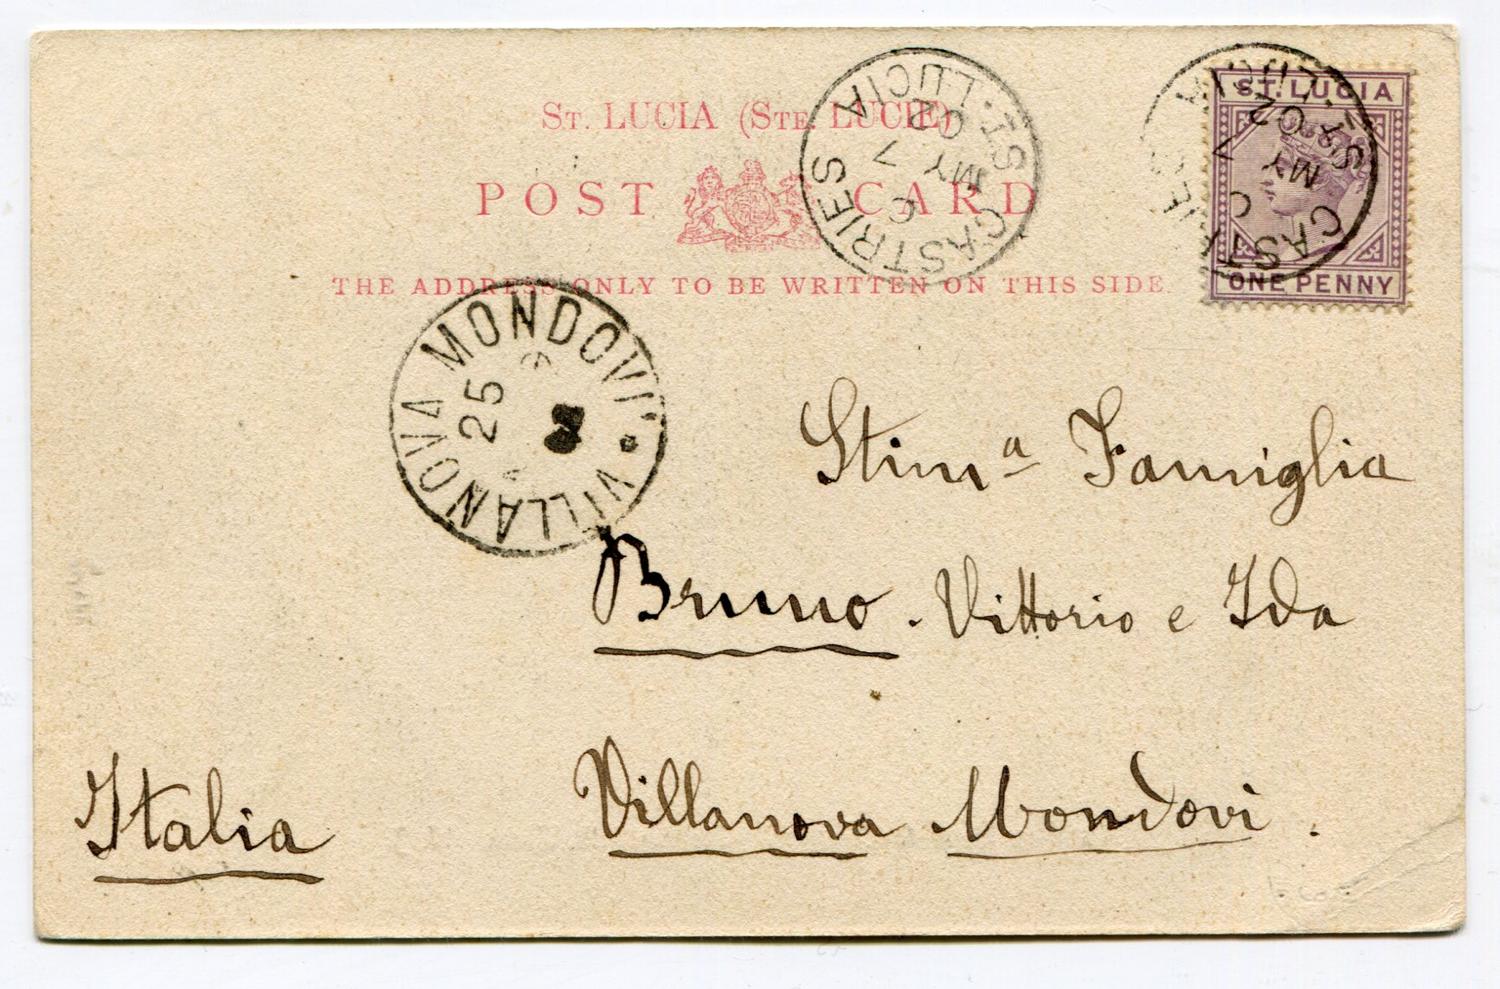 ST. LUCIA (STE. LUCIE)
POST CARD
THE ADDRESS ONLY TO BE WRITTEN ON THIS SIDE.
CASTRIES ST. LUCIA
C
MY 7
02
ST. LUCIA
ONE PENNY
CASTRIES ST. LUCIA
C
MY 7
02
VILLANOVA MONDOVI'
25
Stimª Famiglia
Bruno. Vittorio e Ida
Villanova Mondovi.
Italia